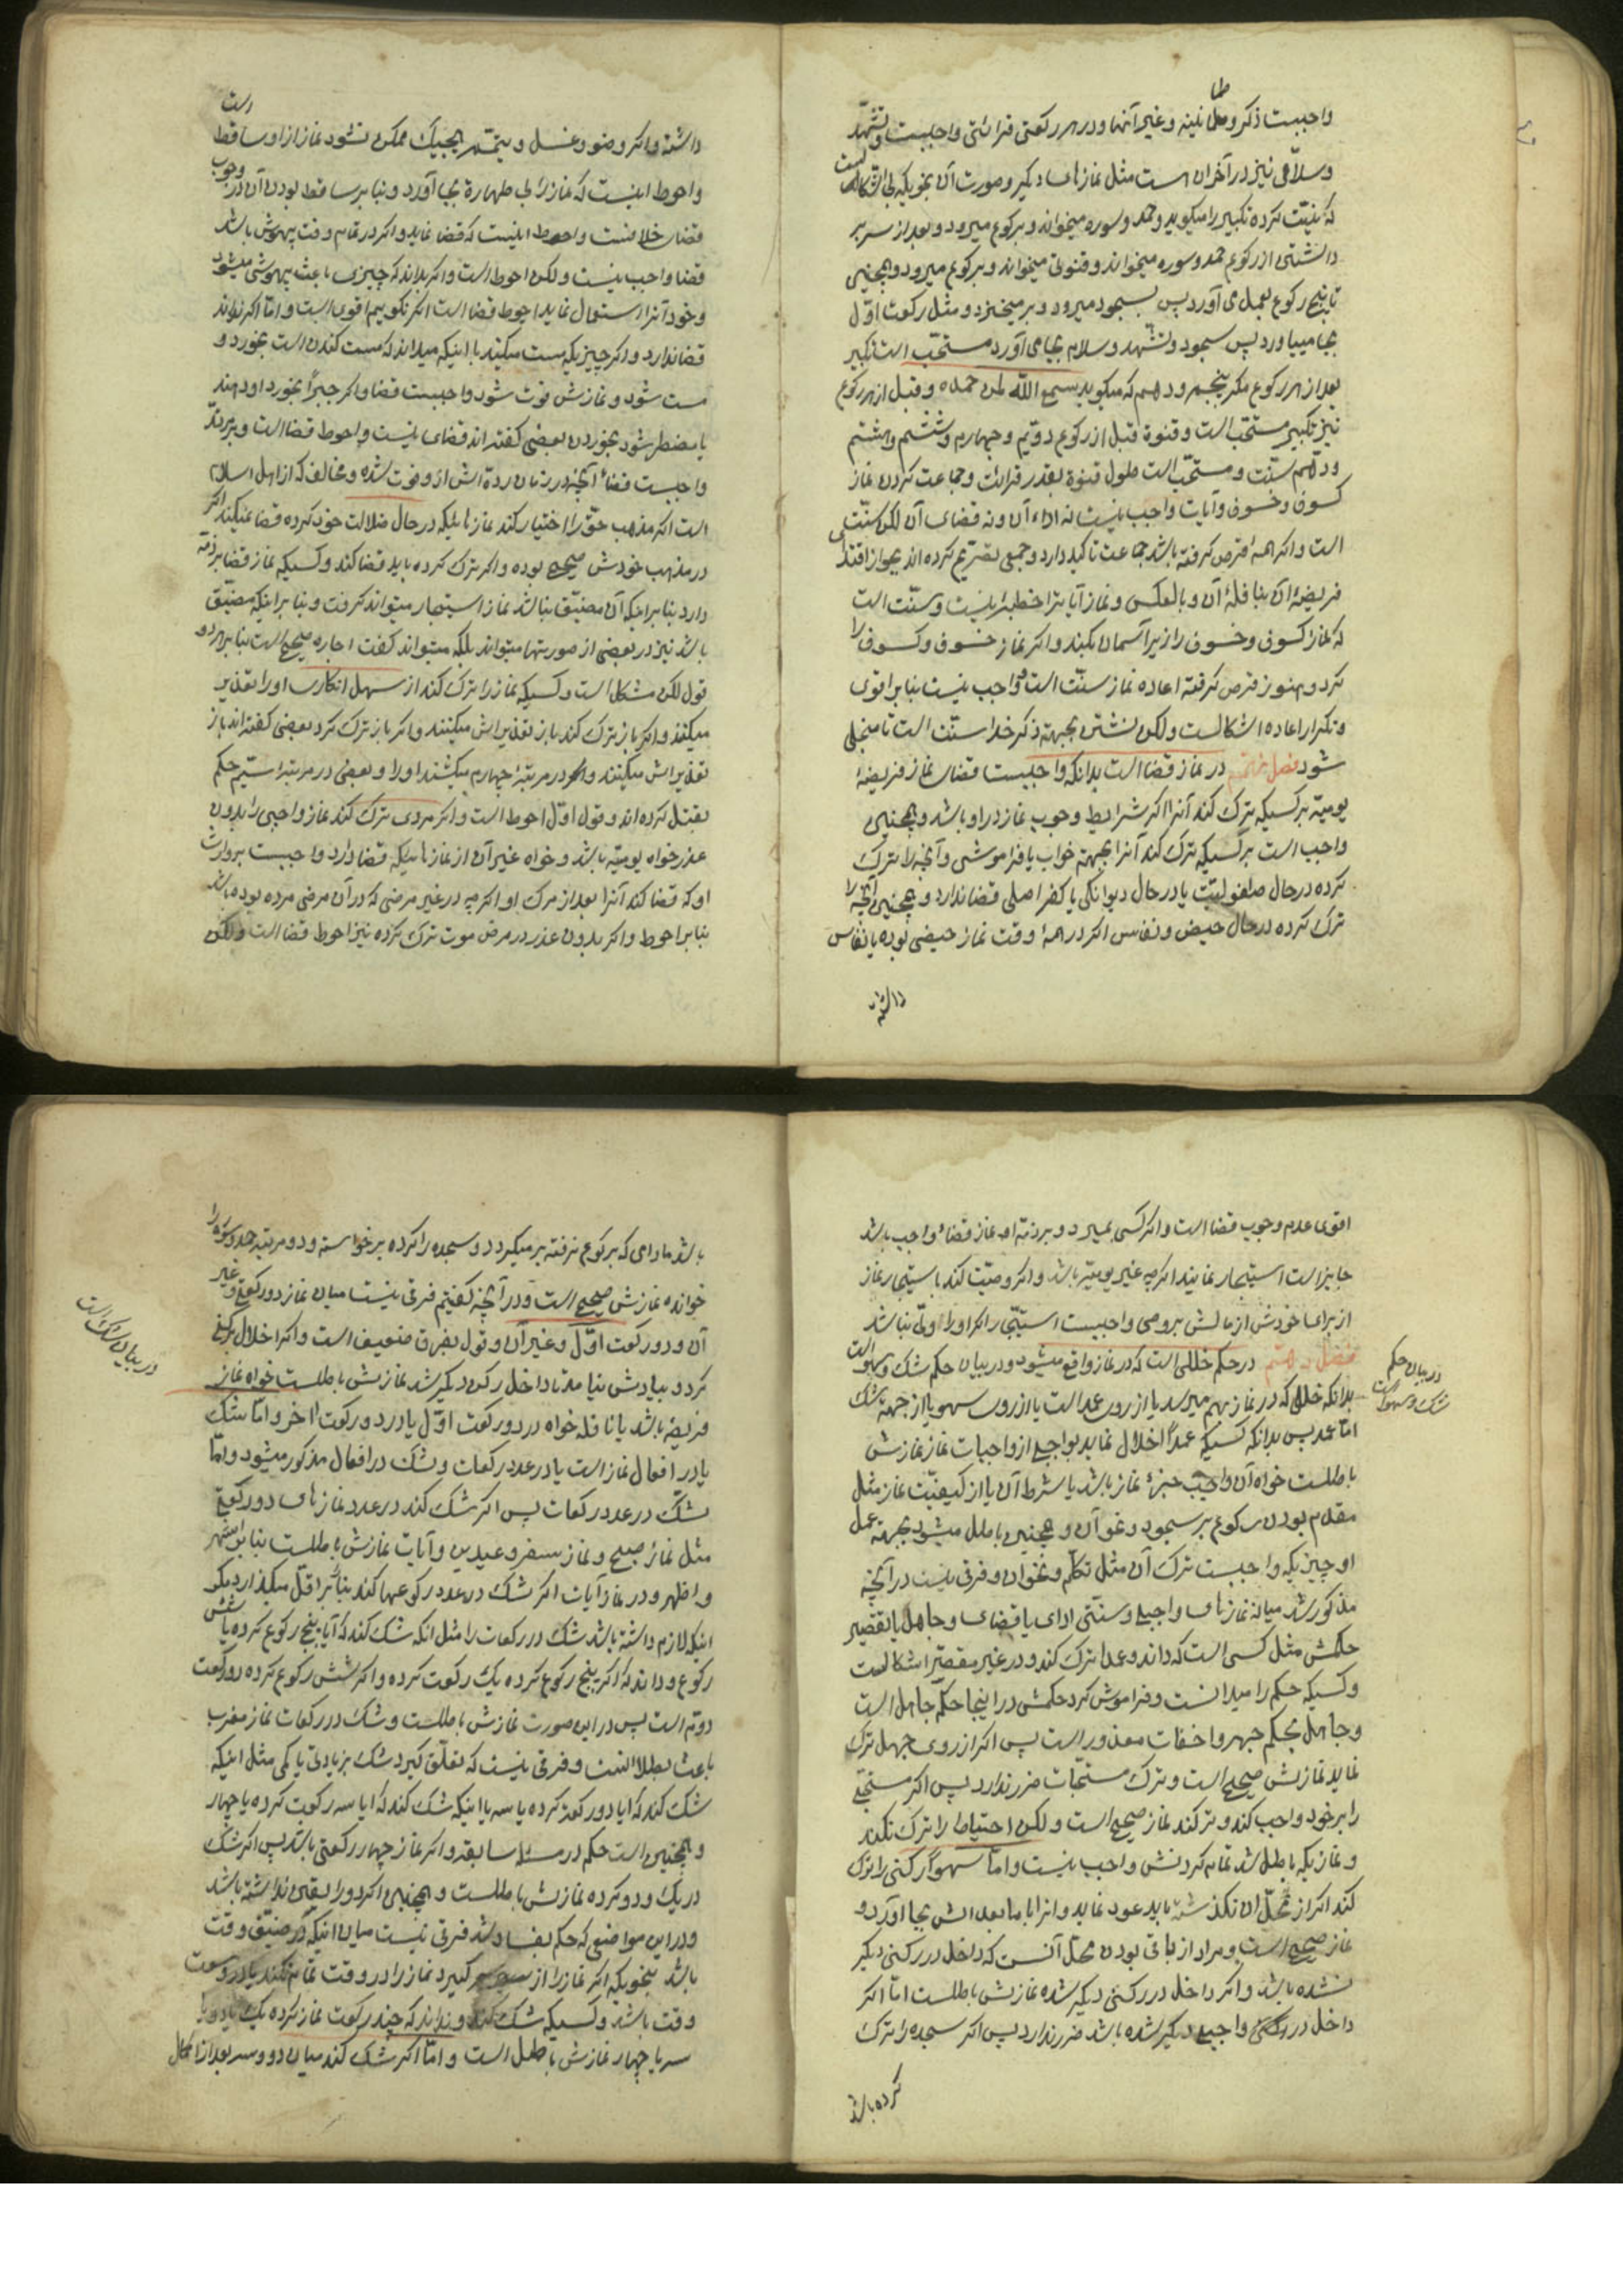 واجبست ذکر و طمانینه و غیر آنها و در هر رکعتی قرائتی واجبست و تشهّد
و سلامی نیز در آخر آن هست مثل نمازهای دیگر و صورت آن بنحویکه بی اشکالست
که نیّت کرده تکبیر را میگوید و حمد و سوره میخواند و برکوع میرود و بعد از سر بر
داشتن از رکوع حمد و سوره میخواند و قنوتی میخواند و برکوع میرود و همچنین
تا پنج رکوع بعمل می آورد پس بسجود میرود و بر میخیزد و مثل رکعت اوّل
بجا میاورد پس سجود و تشهد و سلام بجا می آورد مستحّب است تکبیر
بعد از هر رکوع مگر پنجم و دهم که میگوید سمع الله لمن حمده و قبل از هر رکوع
نیز تکبیر مستحّب است و قنوة قبل از رکوع دوّیم و چهارم و ششم و هشتم
و دهم سنّت و مستحّب است طول قنوة بقدر قرائت و جماعت کردن نماز
کسوف و خسوف و آیات واجب نیست نه اداء آن و نه قضای آن لکن سنّت
است و اگر همهٔ قرص گرفته باشد جماعت تاکید دارد و جمعی تصریح کرده اند بجواز اقتدای
فریضهٔ آن بنافلهٔ آن و بالعکس و نماز آیات را خطبه نیست و سنّت است
که نماز کسوف و خسوف را زیر آسمان بکند و اگر نماز خسوف و کسوف را
کرد و هنوز قرص گرفته اعاده نماز سنّت است و واجب نیست بنابر اقوی
و تکرار اعاده اشکالست ولکن نشستن بجهتهٔ ذکر خدا سنّت است تا منجلی
شود فصل هفتم در نماز قضا است بدانکه واجبست قضای نماز فریضهٔ
یومیّه بر کسیکه ترک کند آنرا اگر شرایط وجوب نماز در او باشد و همچنین
واجب است بر کسیکه ترک کند آنرا بجهتهٔ خواب یا فراموشی و آنچه را ترک
کرده در حال طفولیّت یا در حال دیوانگی یا کفر اصلی قضا ندارد و همچنین آنچه را
ترک کرده در حال حیض و نفاس اگر در همهٔ وقت نماز حیض بوده یا نفاس
داشته
داشته و اگر وضو و غسل و تیمّم هیچیک ممکن نشود نماز از او ساقط است
و احوط اینست که نماز را بی طهارة بجا آورد و بنابر ساقط بودن آن در وجوب
قضای خلافست و احوط اینست که قضا نماید و اگر در تمام وقت بیهوش باشد
قضا واجب نیست و لکن احوط است و اگر بداند که چیزی باعث بیهوشی میشود
و خود آنرا استعمال نماید احوط قضا است اگر نگوییم اقوی است و امّا اگر نداند
قضا ندارد و اگر چیزیکه مست میکند با اینکه میداند که مست کننده است بخورد و
مست شود و نمازش فوت شود واجبست قضا و اگر جبراً بخورد او دهند
یا مضطر شود بخوردن بعضی گفته اند قضای نیست و احوط قضا است و بر مرتدّ
واجبست قضاء آنچه در زمان ردّة اش از او فوت شده و مخالف که از اهل اسلام
است اگر مذهب حقّ را اختیار کند نمازهائیکه در حال ضلالت خود کرده قضا نمیکند اگر
در مذهب خودش صحیح بوده و اگر ترک کرده باید قضا کند و کسیکه نماز قضا بر ذمّه
دارد بنابر اینکه آن مضیّق نباشد نماز استیجار میتواند گرفت و بنابر اینکه مضیّق
باشد نیز در بعضی از صورتها میتواند بلکه میتواند گفت اجاره صحیح است بنابر هر دو
قول لکن مشکل است و کسیکه نماز را ترک کند از سهل انکاری او را تعذیر
میکنند و اگر باز ترک کند باز تعذیرش میکنند و اگر باز ترک کرد بعضی گفته اند باز
تعذیرش میکنند و اگر در مرتبهٔ چهارم میکشند او را و بعضی در مرتبهٔ سیّم حکم
بقتل کرده اند و قول اوّل احوط است و اگر مردی ترک کند نماز واجبی را بدون
عذر خواه یومیّه باشد و خواه غیر آن از نمازهائیکه قضا دارد واجبست بر وارث
او که قضا کند آنرا بعد از مرگ او اگر چه در غیر مرضی که در آن مرض مرده بوده باشد
بنابر احوط و اگر بدون عذر در مرض موت ترک کرده نیز احوط قضا است و لکن
اقوی عدم وجوب قضا است و اگر کسی بمیرد و بر ذمّه او نماز قضاء واجب باشد
جایز است استیجار نمایند اگر چه غیر یومیّه باشد و اگر وصیّت کند باستیجار نماز
از برای خودش از مالش بر وصی واجبست استیجار اگر او را ولیّ نباشد
فصل هشتم در حکم خللی است که در نماز واقع میشود و در بیان حکم شک و سهو است
در بیان حکم
شک و سهو است
بدانکه خللی که در نماز بهم میرسد یا از روی عمد است یا از روی سهو یا از جهتهٔ شک
امّا عمد پس بدانکه کسیکه عمداً اخلال نماید بواجبی از واجبات نماز نمازش
باطلست خواه آن واجب جزء نماز باشد یا شرط آن یا از کیفیّت نماز مثل
مقدّم بودن رکوع بر سجود و نحو آن و همچنین باطل میشود بجهتهٔ عمل
او چیزیکه واجبست ترک آن مثل تکلّم و نحو آن و فرقی نیست در آنچه
مذکور شد میانهٔ نمازهای واجبی و سنّتی ادای یا قضای و جاهل بالتقصیر
حکمش مثل کسی است که داند و عمدا ترک کند و در غیر مقصّر اشکالست
و کسیکه حکم را میدانست و فراموش کرد حکمش در اینجا حکم جاهل است
و جاهل بحکم جهر و اخفات معذور است پس اگر از روی جهل ترک
نماید نمازش صحیح است و ترک مستحّبات ضرر ندارد پس اگر مستحبّی
را بر خود واجب کند و ترکند نماز صحیح است و لکن احتیاط را ترک نکند
و نمازیکه باطل شد تمام کردنش واجب نیست و امّا سهو اگر رکنی را ترک
کند اگر از محلّ آن نگذشته باید عود نماید و انرا با ما بعد اش بجا آورد و
نماز صحیح است و مراد از باقی بودن محلّ آنست که داخل در رکنی دیگر
نشده باشد و اگر داخل در رکنی دیگر شده نمازش باطلست امّا اگر
داخل در رکنی واجبی دیگر شده باشد ضرر ندارد پس اگر سجده را ترک
کرده باشد
باشد مادامی که برکوع نرفته بر میگردد و سجده را کرده بر خواسته و دو مرتبه حمد و سوره را
خوانده نمازش صحیح است و در آنچه گفتیم فرقی نیست میان نماز دو رکعتی و غیر
آن و دو رکعت اوّل و غیر آن و قول بفرق ضعیف است و اگر اخلال برکنی
در بیان شک است
کرد و بیادش نیامد تا داخل رکن دیگر شد نمازش باطلست خواه نماز
فریضه باشد یا نافله خواه در دو رکعت اوّل یا در دو رکعت اخر و امّا شک
یا در افعال نماز است یا در عدد رکعات و شک در افعال مذکور میشود و امّا
شک در عدد رکعات پس اگر شک کند در عدد نمازهای دو رکعتی
مثل نماز صبح و نماز سفر و عیدین و آیات نمازش باطلست بنابر اشهر
و اظهر و در نماز آیات اگر شک در عدد رکوعها کند بنا بر اقلّ میگذارد مگر
اینکه لازم داشته باشد شک در رکعات را مثل انکه شک کند که آیا پنج رکوع کرده یا شش
رکوع و داند که اگر پنج رکوع کرده یک رکعت کرده و اگر شش رکوع کرده در رکعت
دوّم است پس در این صورت نمازش باطلست و شک در رکعات نماز مغرب
باعث بطلا‌نست و فرقی نیست که تعلّق گیرد شک بزیادتی یا کمی مثل اینکه
شک کند که ایا دو رکعت کرده یا سه یا اینکه شک کند که ایا سه رکعت کرده یا چهار
و همچنین است حکم در مسئلهٔ سابقه و اگر نماز چهار رکعتی باشد پس اگر شک
در یک و دو کرده نمازش باطلست و همچنین اگر دو را یقین نداشته باشد
و در این مواضعی که حکم بفساد شد فرقی نیست میان اینکه در ضیّق وقت
باشد بنحویکه اگر نماز را از سر گیرد نماز را در وقت تمام نکند یا در وسعت
وقت باشد و کسیکه شک کند و نداند که چند رکعت نماز کرده یک یا دو یا
سه یا چهار نمازش باطل است و امّا اگر شک کند میان دو و سه بعد از اکمال